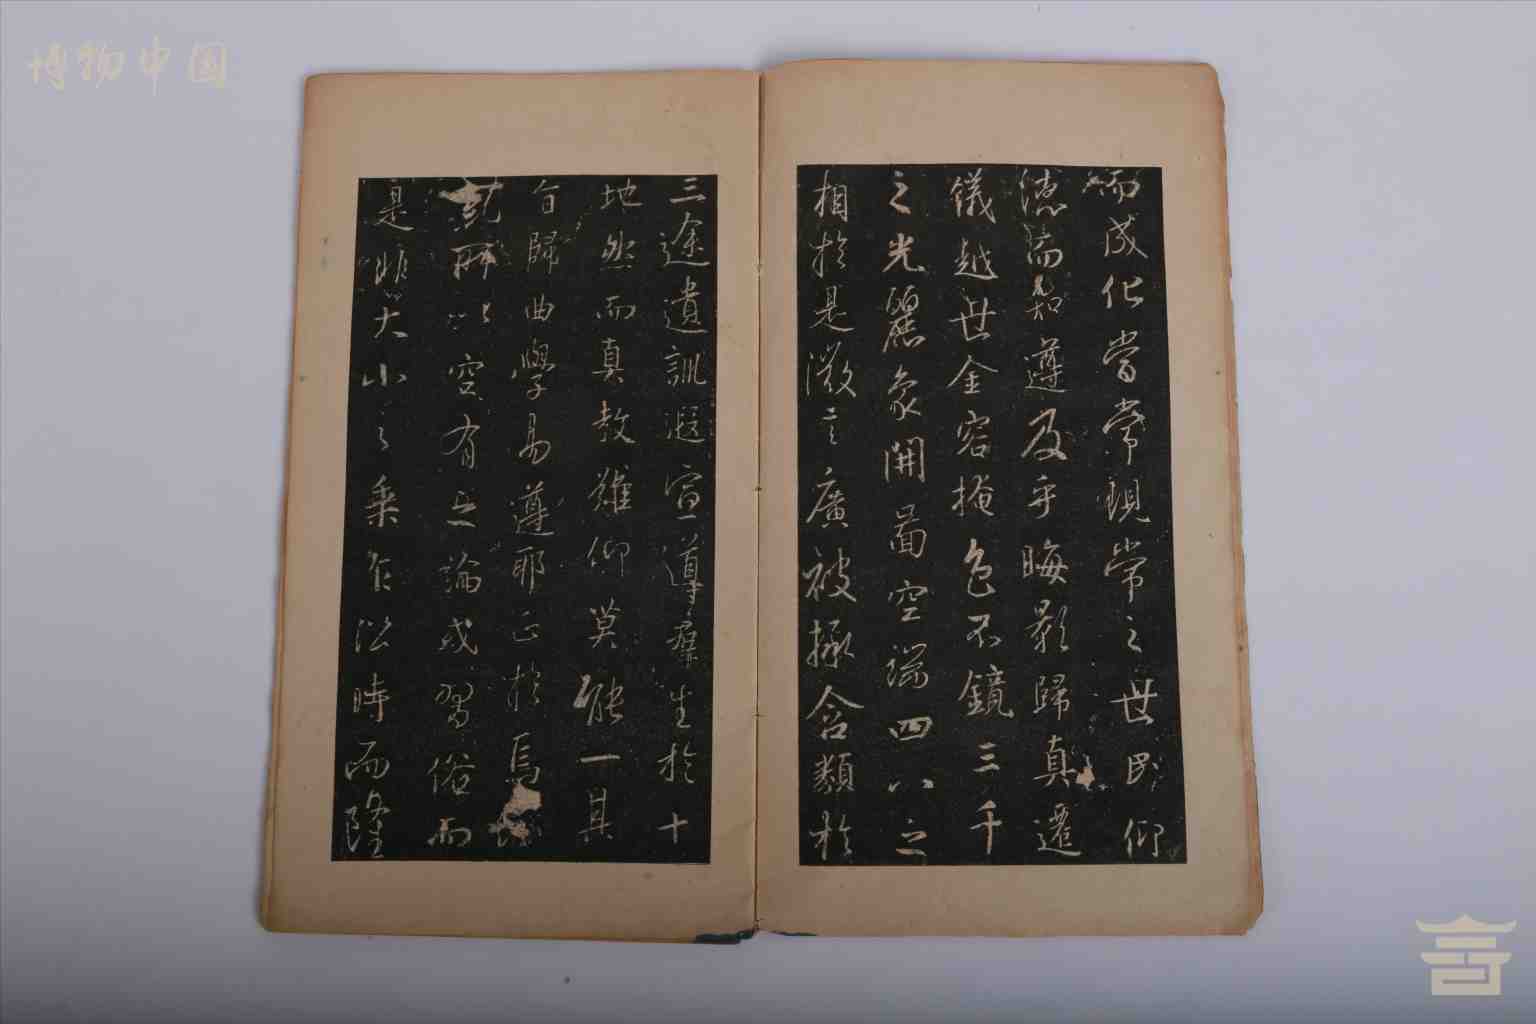 博物中国
而成化當常現常之世民仰
德而知遵及乎晦影歸真遷
儀越世金容掩色不鏡三千
之光麗象開圖空端四八之
相於是微言廣被拯含類於
三途遺訓遐宣導羣生於十
地然而真教難仰莫能一其
旨歸曲學易遵耶正於焉
糺所以空有之論或習俗而
是非大小之乘乍沿時而隆